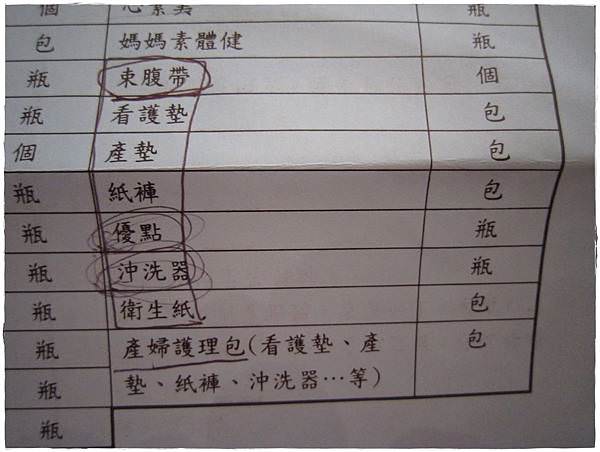 個 心素美 瓶
包 媽媽素體健 瓶
瓶 束腹帶 個
瓶 看護墊 包
個 產墊 包
瓶 紙褲 包
瓶 優點 瓶
瓶 沖洗器 瓶
瓶 衛生紙 包
瓶 產婦護理包(看護墊、產 包
瓶 墊、紙褲、沖洗器…等)
瓶